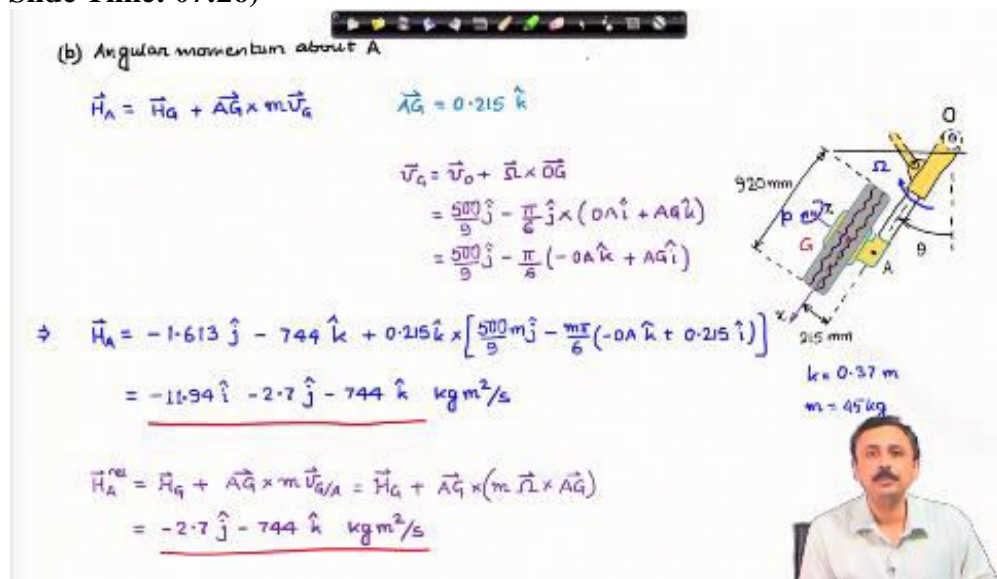 (b) Angular momentum about A
H⃗_A = H⃗_G + AG⃗ × m v⃗_G    AG⃗ = 0.215 k̂
v⃗_G = v⃗_O + Ω⃗ × OG⃗
= 500/9 ĵ - π/6 ĵ × (OA î + AG k̂)
= 500/9 ĵ - π/6 (-OA k̂ + AG î)
⇒ H⃗_A = -1.613 ĵ - 744 k̂ + 0.215 k̂ × [500/9 m ĵ - mπ/6 (-OA k̂ + 0.215 î)]
= -11.94 î - 2.7 ĵ - 744 k̂ kg m²/s
H⃗_A^rel = H⃗_G + AG⃗ × m v⃗_G/A = H⃗_G + AG⃗ × (m Ω⃗ × AG⃗)
= -2.7 ĵ - 744 k̂ kg m²/s
O
Ω
920 mm
p
z
G
θ
A
x
215 mm
k = 0.37 m
m = 45 kg